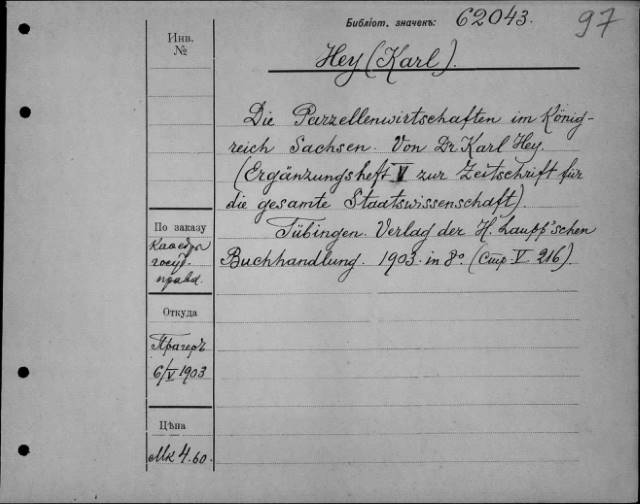 Библіот. значекъ: 62043.
97
Инв.
№
Hey (Karl).
Die Parzellenwirtschaften im König-
reich Sachsen. Von Dr. Karl Hey.
(Ergänzungsheft V zur Zeitschrift für
die gesamte Staatswissenschaft).
Tübingen. Verlag der H. Laupp'schen
Buchhandlung. 1903. in 8° (Стр V. 216).
По заказу
Каѳедры
госуд.
права.
Откуда
Прагеръ
6/V 1903
Цѣна
Мк 4.60.